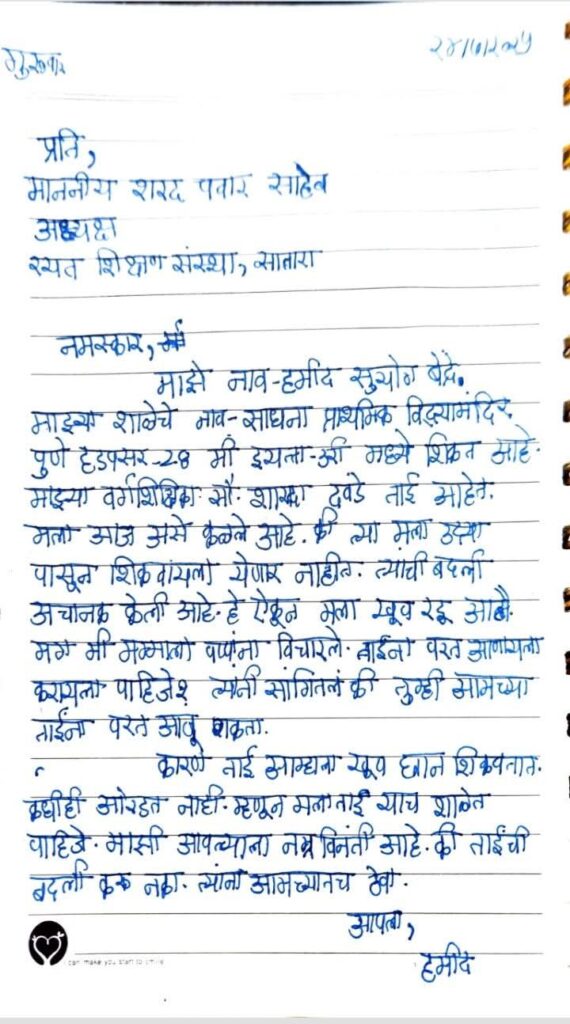 गुरुवार
२४/७/२०२५
प्रति,
माननीय शरद पवार साहेब
अध्यक्ष
रयत शिक्षण संस्था, सातारा
नमस्कार,
माझे नाव-हमीद सुयोग बेंद्रे.
माझ्या शाळेचे नाव-साधना प्राथमिक विद्यामंदिर,
पुणे हडपसर-28 मी इयत्ता-3री मध्ये शिकत आहे.
माझ्या वर्गशिक्षिका सौ. शारदा दवडे ताई आहेत.
मला आज असे कळले आहे. की त्या मला उद्या
पासून शिकवायला येणार नाहीत. त्यांची बदली
अचानक केली आहे. हे ऐकून मला खूप रडू आले.
मग मी मम्माला पप्पांना विचारले. ताईंना परत आणायला
करायला पाहिजे? त्यांनी सांगितलं की तुम्ही आमच्या
ताईंना परत आणू शकता.
कारण ताई आम्हाला खूप छान शिकवतात.
कधीही ओरडत नाही. म्हणून मला ताई याच शाळेत
पाहिजे. माझी आपल्याला नम्र विनंती आहे. की ताईंची
बदली करू नका. त्यांना आमच्यातच ठेवा.
आपला,
हमीद
can make you start to smile